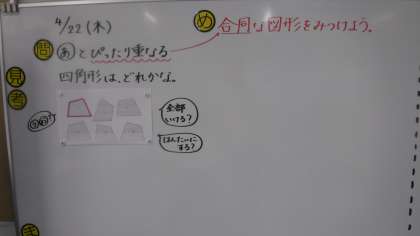 4/22(木)
め 合同な図形をみつけよう。
問 あとぴったり重なる
四角形は、どれかな。
見
考
全部いける?
はんたいにする?
ま